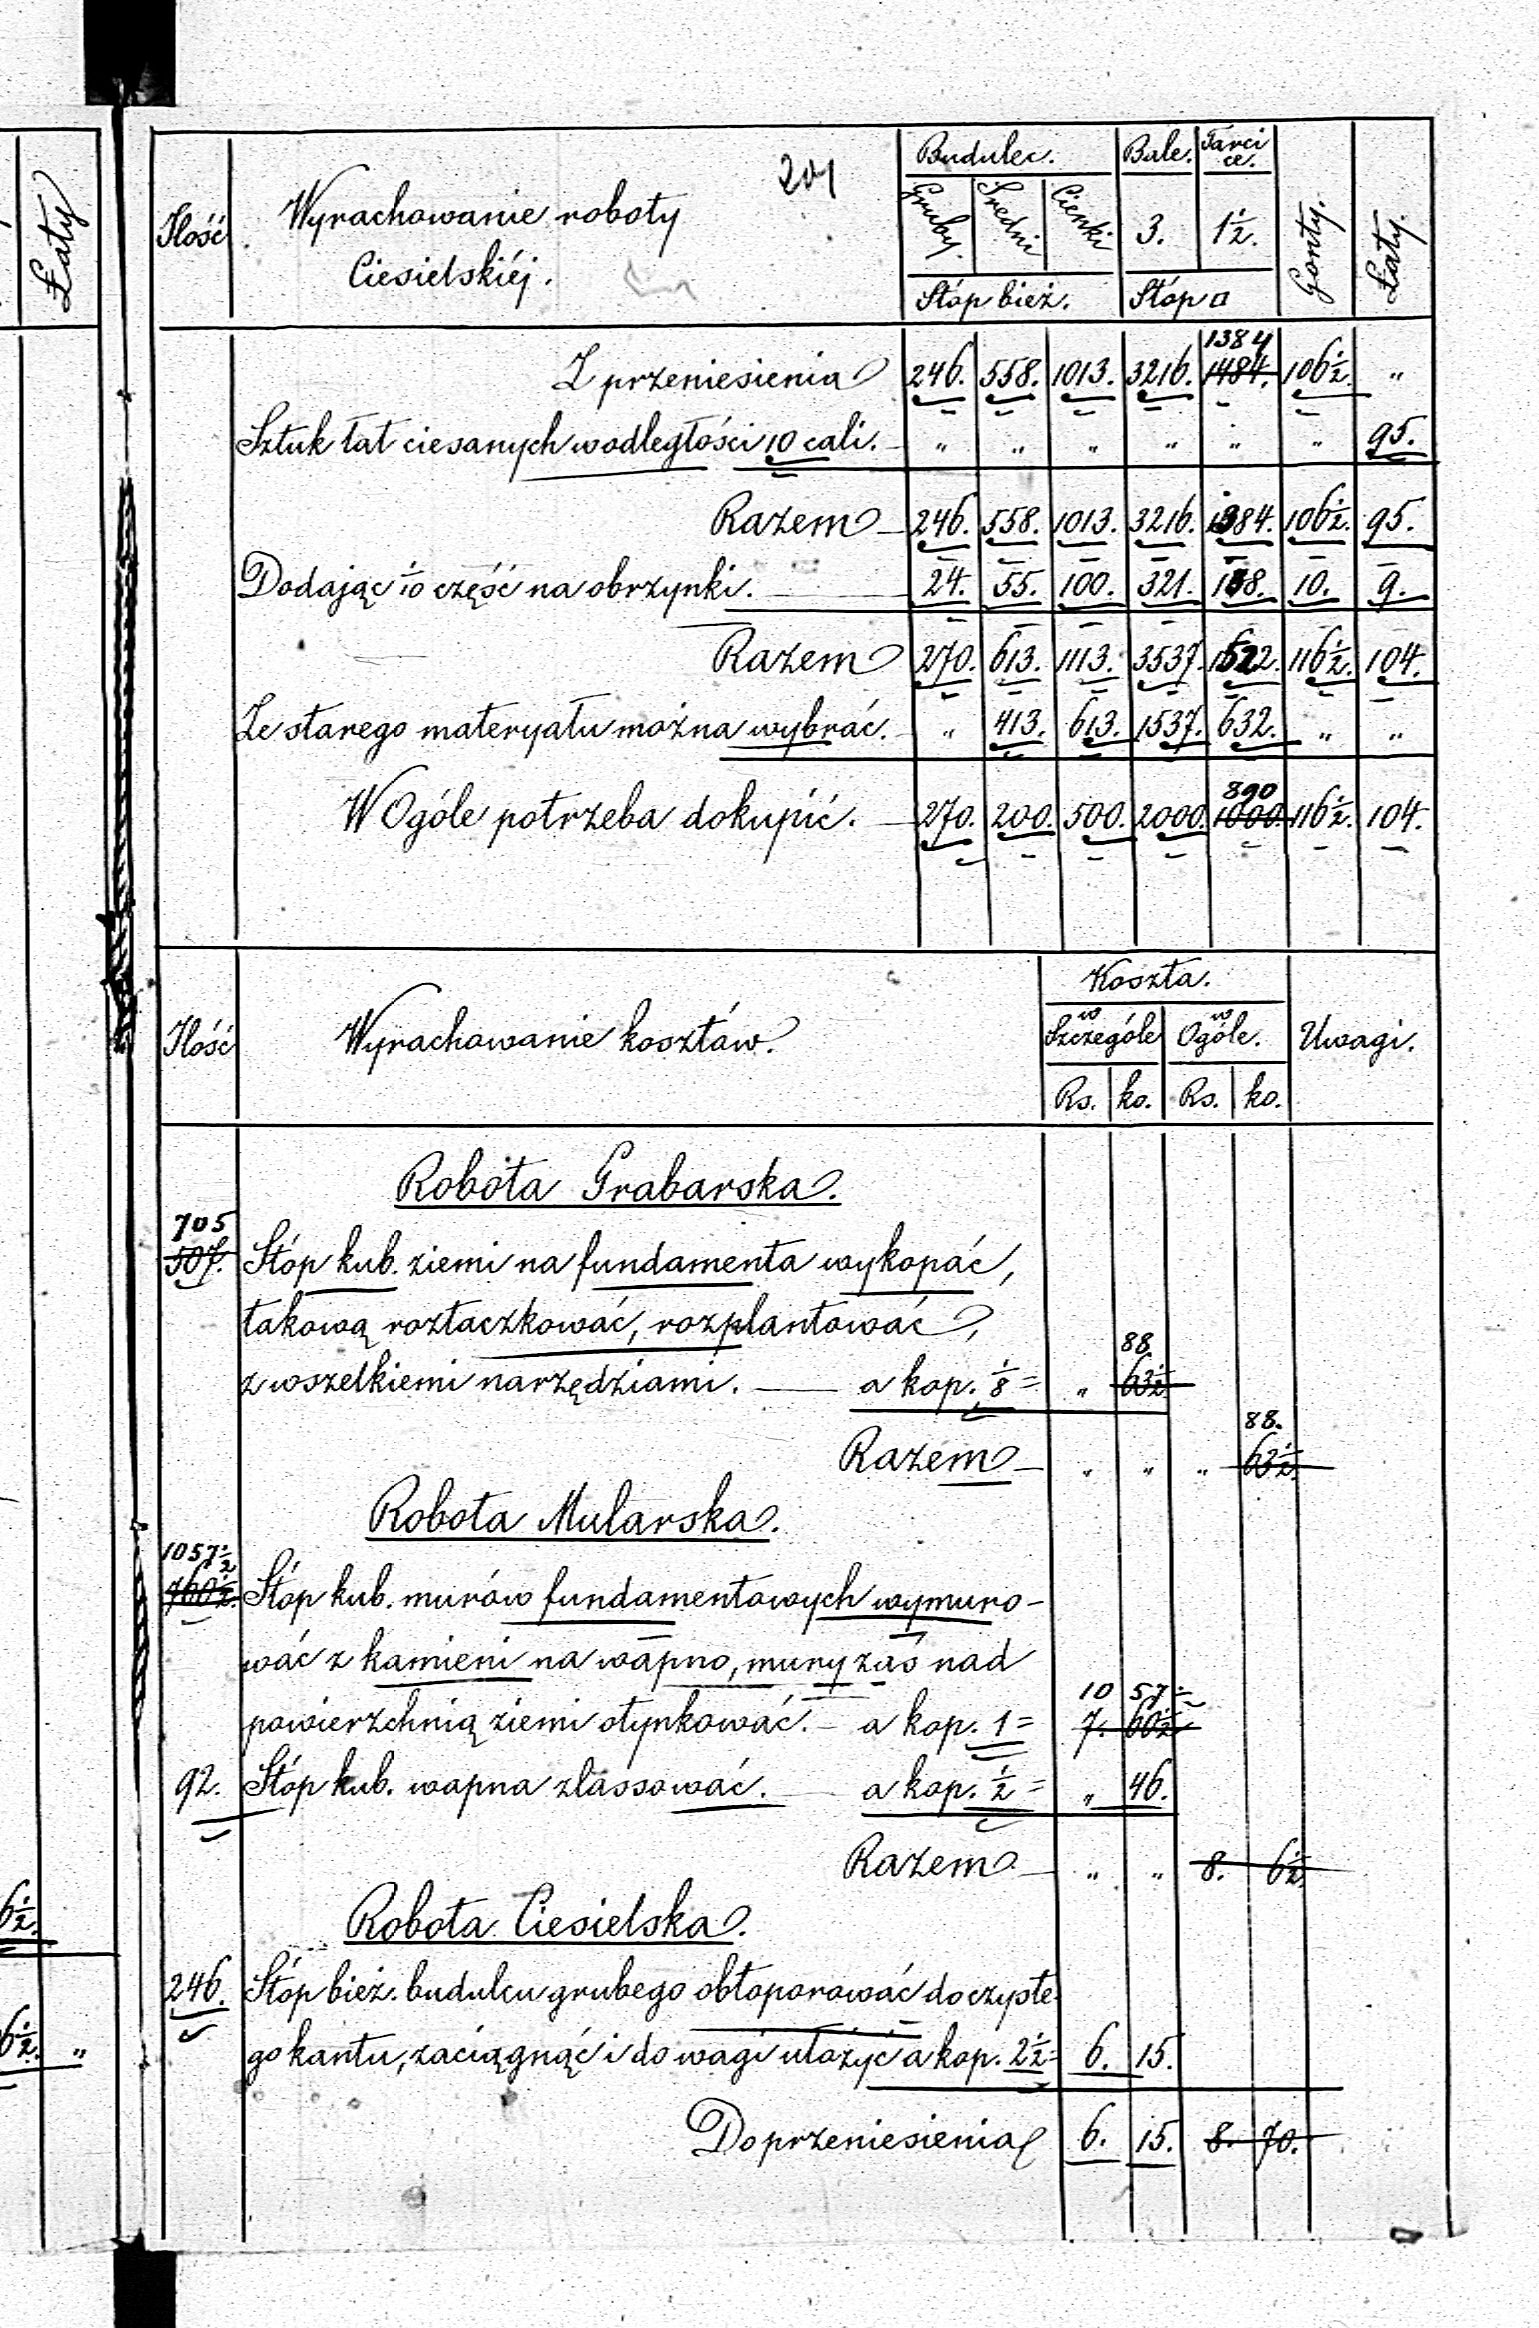 Łaty
6½.
6½. „
201
Ilość
Wyrachowanie roboty
Ciesielskiéj.
Budulec. Bale. Tarci
ce.
Gruby. Średni Cienki 3. 1½. Gonty. Łaty.
Stóp bież. Stóp □
1384
Z przeniesienia 246. 558. 1013. 3216. 1484. 106½. „
Sztuk łat ciesanych w odległości 10 cali. „ „ „ „ „ „ 95.
Razem 246. 558. 1013. 3216. 1384. 106½. 95.
Dodając 1/10 część na obrzynki. 24. 55. 100. 321. 138. 10. 9.
Razem 270. 613. 1113. 3537. 1522. 116½. 104.
Ze starego materyału można wybrać. „ 413. 613. 1537. 632. „ „
890
W Ogóle potrzeba dokupić. 270. 200. 500. 2000. 1000. 116½. 104.
Ilość Wyrachowanie kosztów. Koszta. Uwagi.
w Szczególe w Ogóle.
Rs. ko. Rs. ko.
Robota Grabarska.
705
507. Stóp kub. ziemi na fundamenta wykopać,
takową roztaczkować, rozplantować,
88.
z wszelkiemi narzędziami. a kop. ⅛ = „ 63½
88.
Razem „ „ „ 63½.
Robota Mularska.
1057½
760½. Stóp kub. murów fundamentowych wymuro-
wać z kamieni na wapno, mury zaś nad
10 57½
powierzchnią ziemi otynkować. a kop. 1 = 7. 60½
92. Stóp kub. wapna zlassować. a kop. ½ = „ 46.
Razem „ „ 8. 6½.
Robota Ciesielska.
246. Stóp bież. budulcu grubego obtoporować do czyste-
go kantu, zaciągnąć i do wagi ułożyć a kop. 2½ = 6. 15.
Do przeniesienia 6. 15. 8. 70.